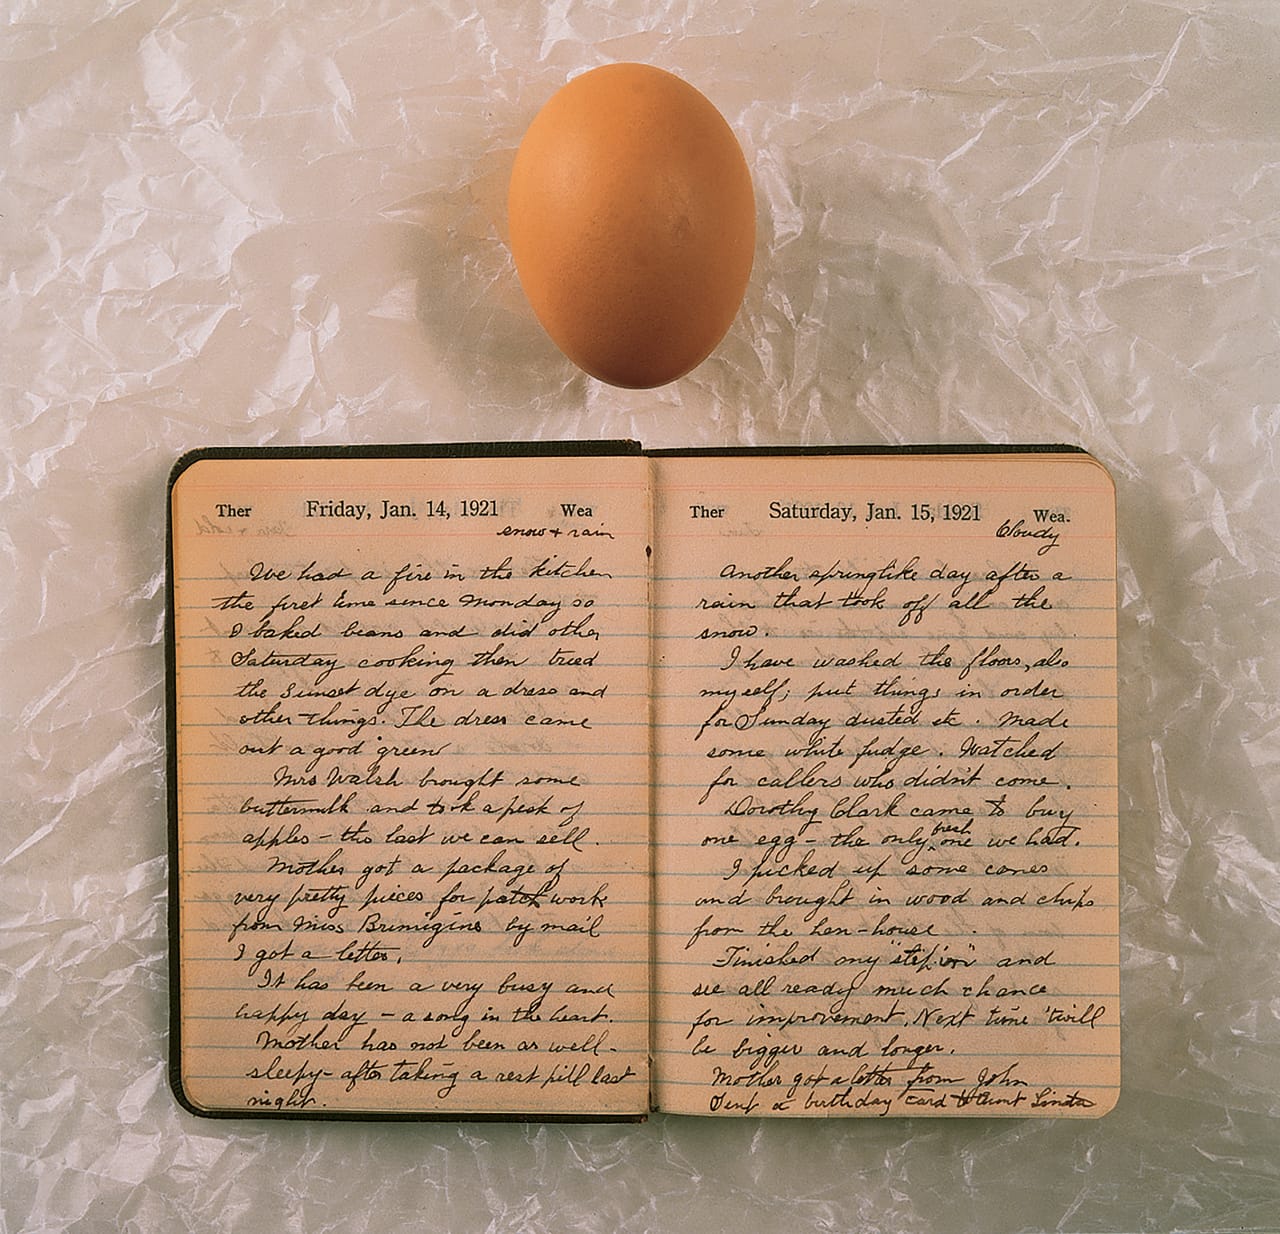 Ther Friday, Jan. 14, 1921 Wea
snow + rain
We had a fire in the kitchen
the first time since Monday so
I baked beans and did other
Saturday cooking then tried
the Sunset dye on a dress and
other things. The dress came
out a good green
Mrs Walsh brought some
buttermilk and took a peck of
apples - the last we can sell.
Mother got a package of
very pretty pieces for patch work
from Miss by mail
I got a letter.
It has been a very busy and
happy day - a song in the heart.
Mother has not been as well -
sleepy - after taking a rest pill last
night.
Ther Saturday, Jan. 15, 1921 Wea.
Cloudy
Another springlike day after a
rain that took off all the
snow.
I have washed the floors, also
myself; put things in order
for Sunday dusted etc. Made
some white fudge. Watched
for callers who didn't come.
Dorothy Clark came to buy
one egg - the only fresh one we had.
I picked up some canes
and brought in wood and chips
from the hen-house.
Finished my "step in" and
see all ready much chance
for improvement. Next time 'twill
be bigger and longer.
Mother got a letter from John
Sent a birthday card to Aunt Linda